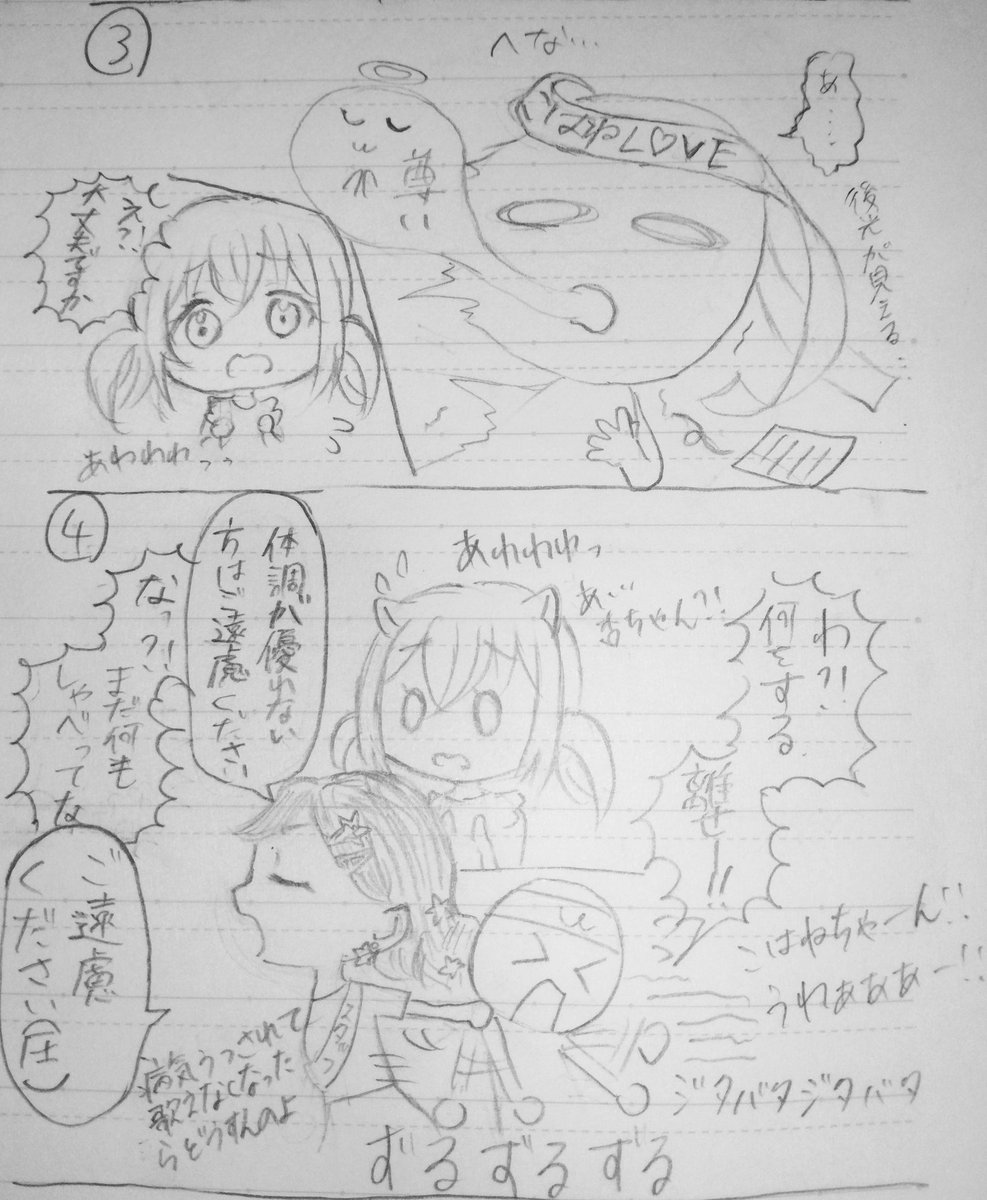 ③
へな…
あ……
こはねLOVE
尊い
後光が見える…
え?!
大丈夫ですか
あわわわ
④
あわわわっ
あ、杏ちゃん?!
わ?!
何をする
離せー!!
体調が優れない
方はご遠慮ください
なっ?!
まだ何も
しゃべってな
ご遠慮
ください(圧)
スタッフ
病気うつされて
歌えなくなった
らどうすんのよ
こはねちゃーん!!
うわぁああー!!
ジタバタジタバタ
ずるずるずる